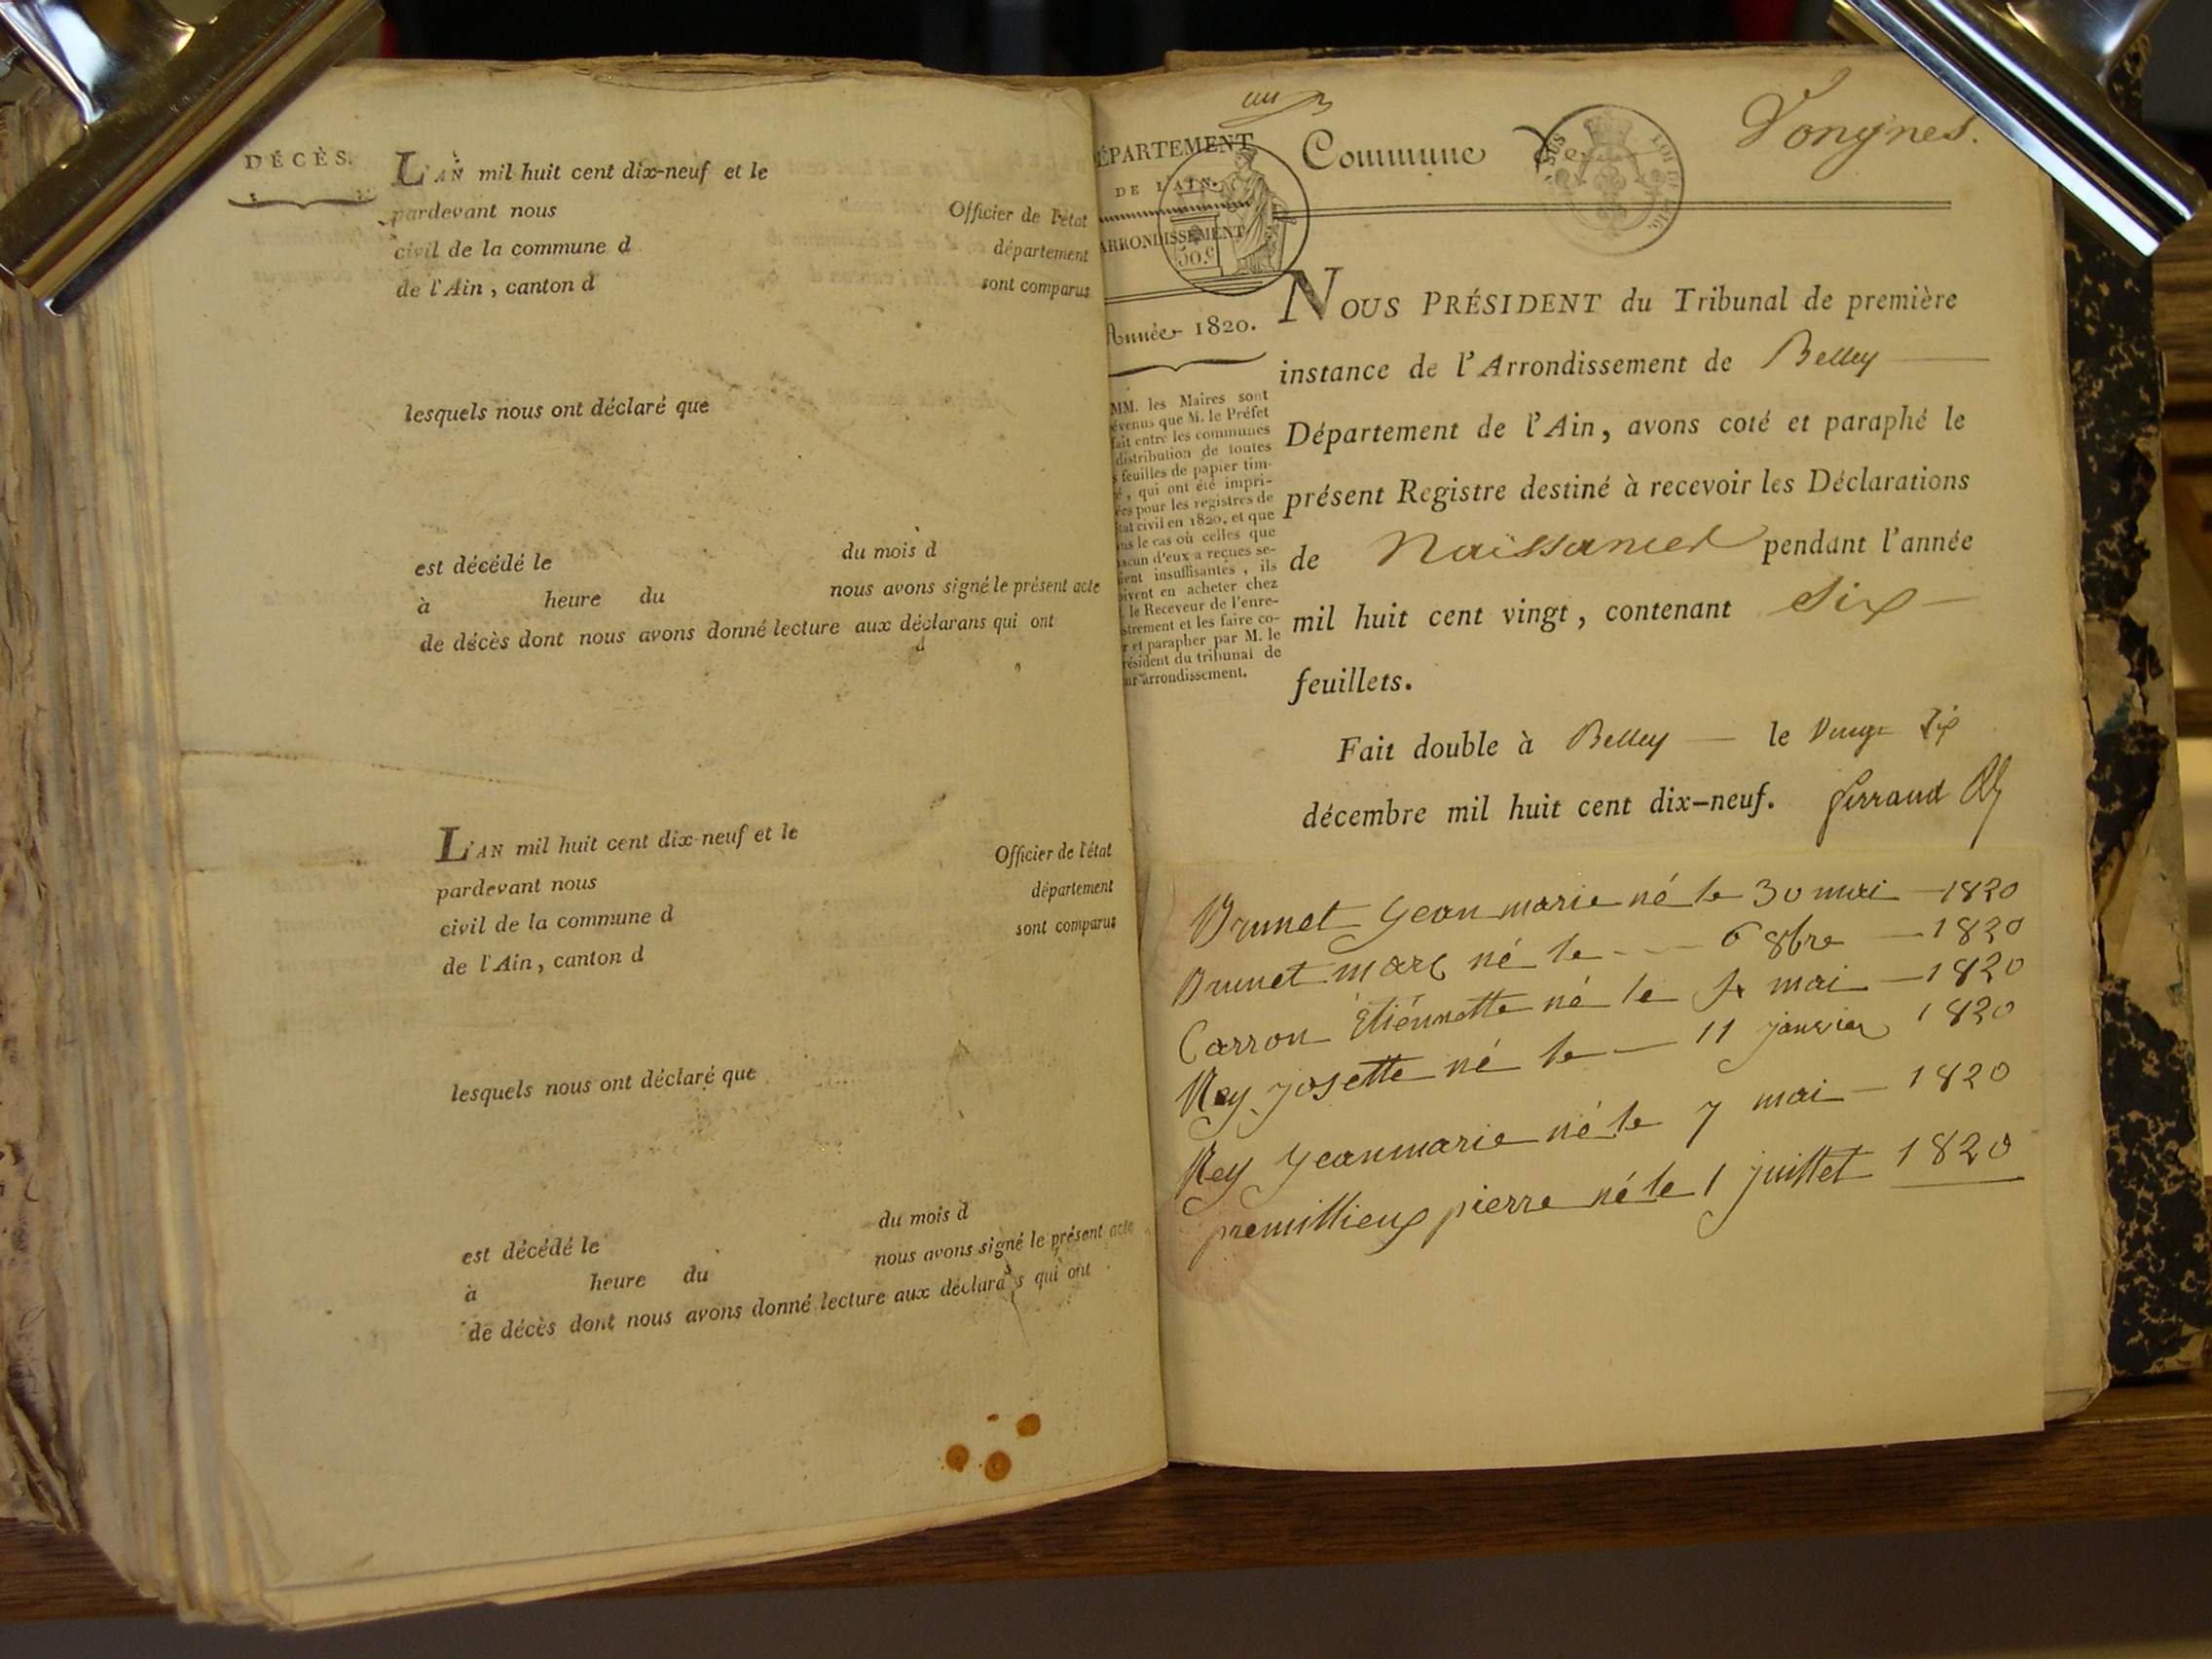 DÉCÈS.
L'AN mil huit cent dix-neuf et le
pardevant nous Officier de l'état
civil de la commune d département
de l'Ain, canton d sont comparus
lesquels nous ont déclaré que
est décédé le du mois d
à heure du nous avons signé le présent acte
de décès dont nous avons donné lecture aux déclarans qui ont
L'AN mil huit cent dix-neuf et le
pardevant nous Officier de l'état
civil de la commune d département
de l'Ain, canton d sont comparus
lesquels nous ont déclaré que
est décédé le du mois d
à heure du nous avons signé le présent acte
de décès dont nous avons donné lecture aux déclara s qui ont
ÉPARTEMENT
DE L'AIN.
ARRONDISSEMENT
50.c
Année 1820.
MM. les Maires sont
évenus que M. le Préfet
fait entre les communes
distribution de toutes
s feuilles de papier tim-
é, qui ont été impri-
ées pour les registres de
tat civil en 1820, et que
ns le cas où celles que
acun d'eux a reçues se-
ient insuffisantes, ils
oivent en acheter chez
. le Receveur de l'enre-
strement et les faire co-
r et parapher par M. le
résident du tribunal de
ur arrondissement.
Commune De Vongnes.
NOUS PRÉSIDENT du Tribunal de première
instance de l'Arrondissement de Belley
Département de l'Ain, avons coté et paraphé le
présent Registre destiné à recevoir les Déclarations
de Naissances pendant l'année
mil huit cent vingt, contenant Six
feuillets.
Fait double à Belley le Vingt Six
décembre mil huit cent dix-neuf. Ferraud
Brunet Jean marie né le 30 mai 1820
Brunet marc né le 6 8bre 1820
Carron Etiénnette né le 4 mai 1820
Rey josette né le 11 janvier 1820
Rey Jeanmarie né le 7 mai 1820
premillieux pierre né le 1 juillet 1820